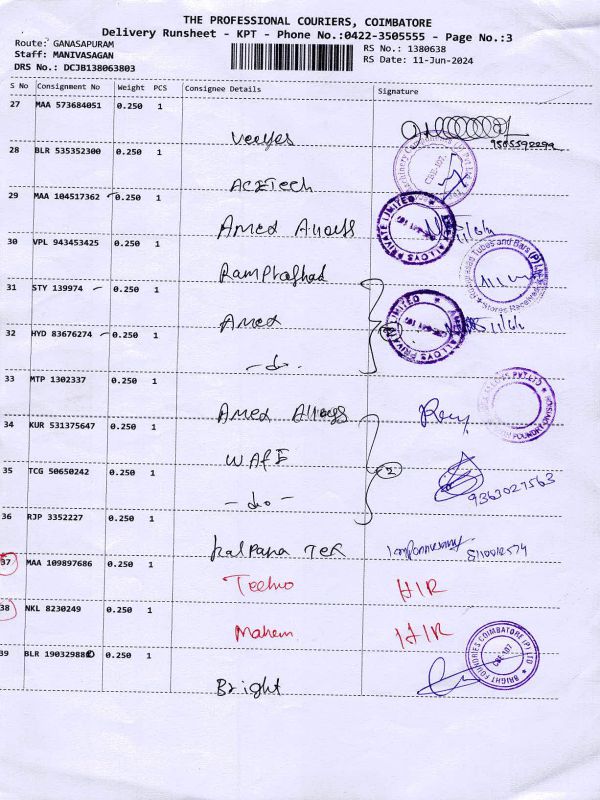 THE PROFESSIONAL COURIERS, COIMBATORE
Delivery Runsheet - KPT - Phone No.:0422-3505555 - Page No.:3
Route: GANASAPURAM RS No.: 1380638
Staff: MANIVASAGAN RS Date: 11-Jun-2024
DRS No.: DCJB138063803
S No Consignment No Weight PCS Consignee Details Signature
27 MAA 573684051 0.250 1
Veeyes
28 BLR 535352300 0.250 1
ACETech
29 MAA 104517362 0.250 1
Amex Alloys
30 VPL 943453425 0.250 1
Ramprashad
31 STY 139974 0.250 1
Amex
32 HYD 83676274 0.250 1
- do -
33 MTP 1302337 0.250 1
Amex Alloys
34 KUR 531375647 0.250 1
WAFI
35 TCG 50650242 0.250 1
- do - 2 9363027563
36 RJP 3352227 0.250 1
Kalpana Tex
37 MAA 109897686 0.250 1
Techno HIR
38 NKL 8230249 0.250 1
Mahem HIR
39 BLR 19032988 0.250 1
Bright
AMEX ALLOYS PRIVATE LIMITED
Tubes and Bars (P)
Stores Received
AMEX ALLOYS PRIVATE LIMITED
BRIGHT FOUNDRIES COIMBATORE (P) LTD
CBE-107